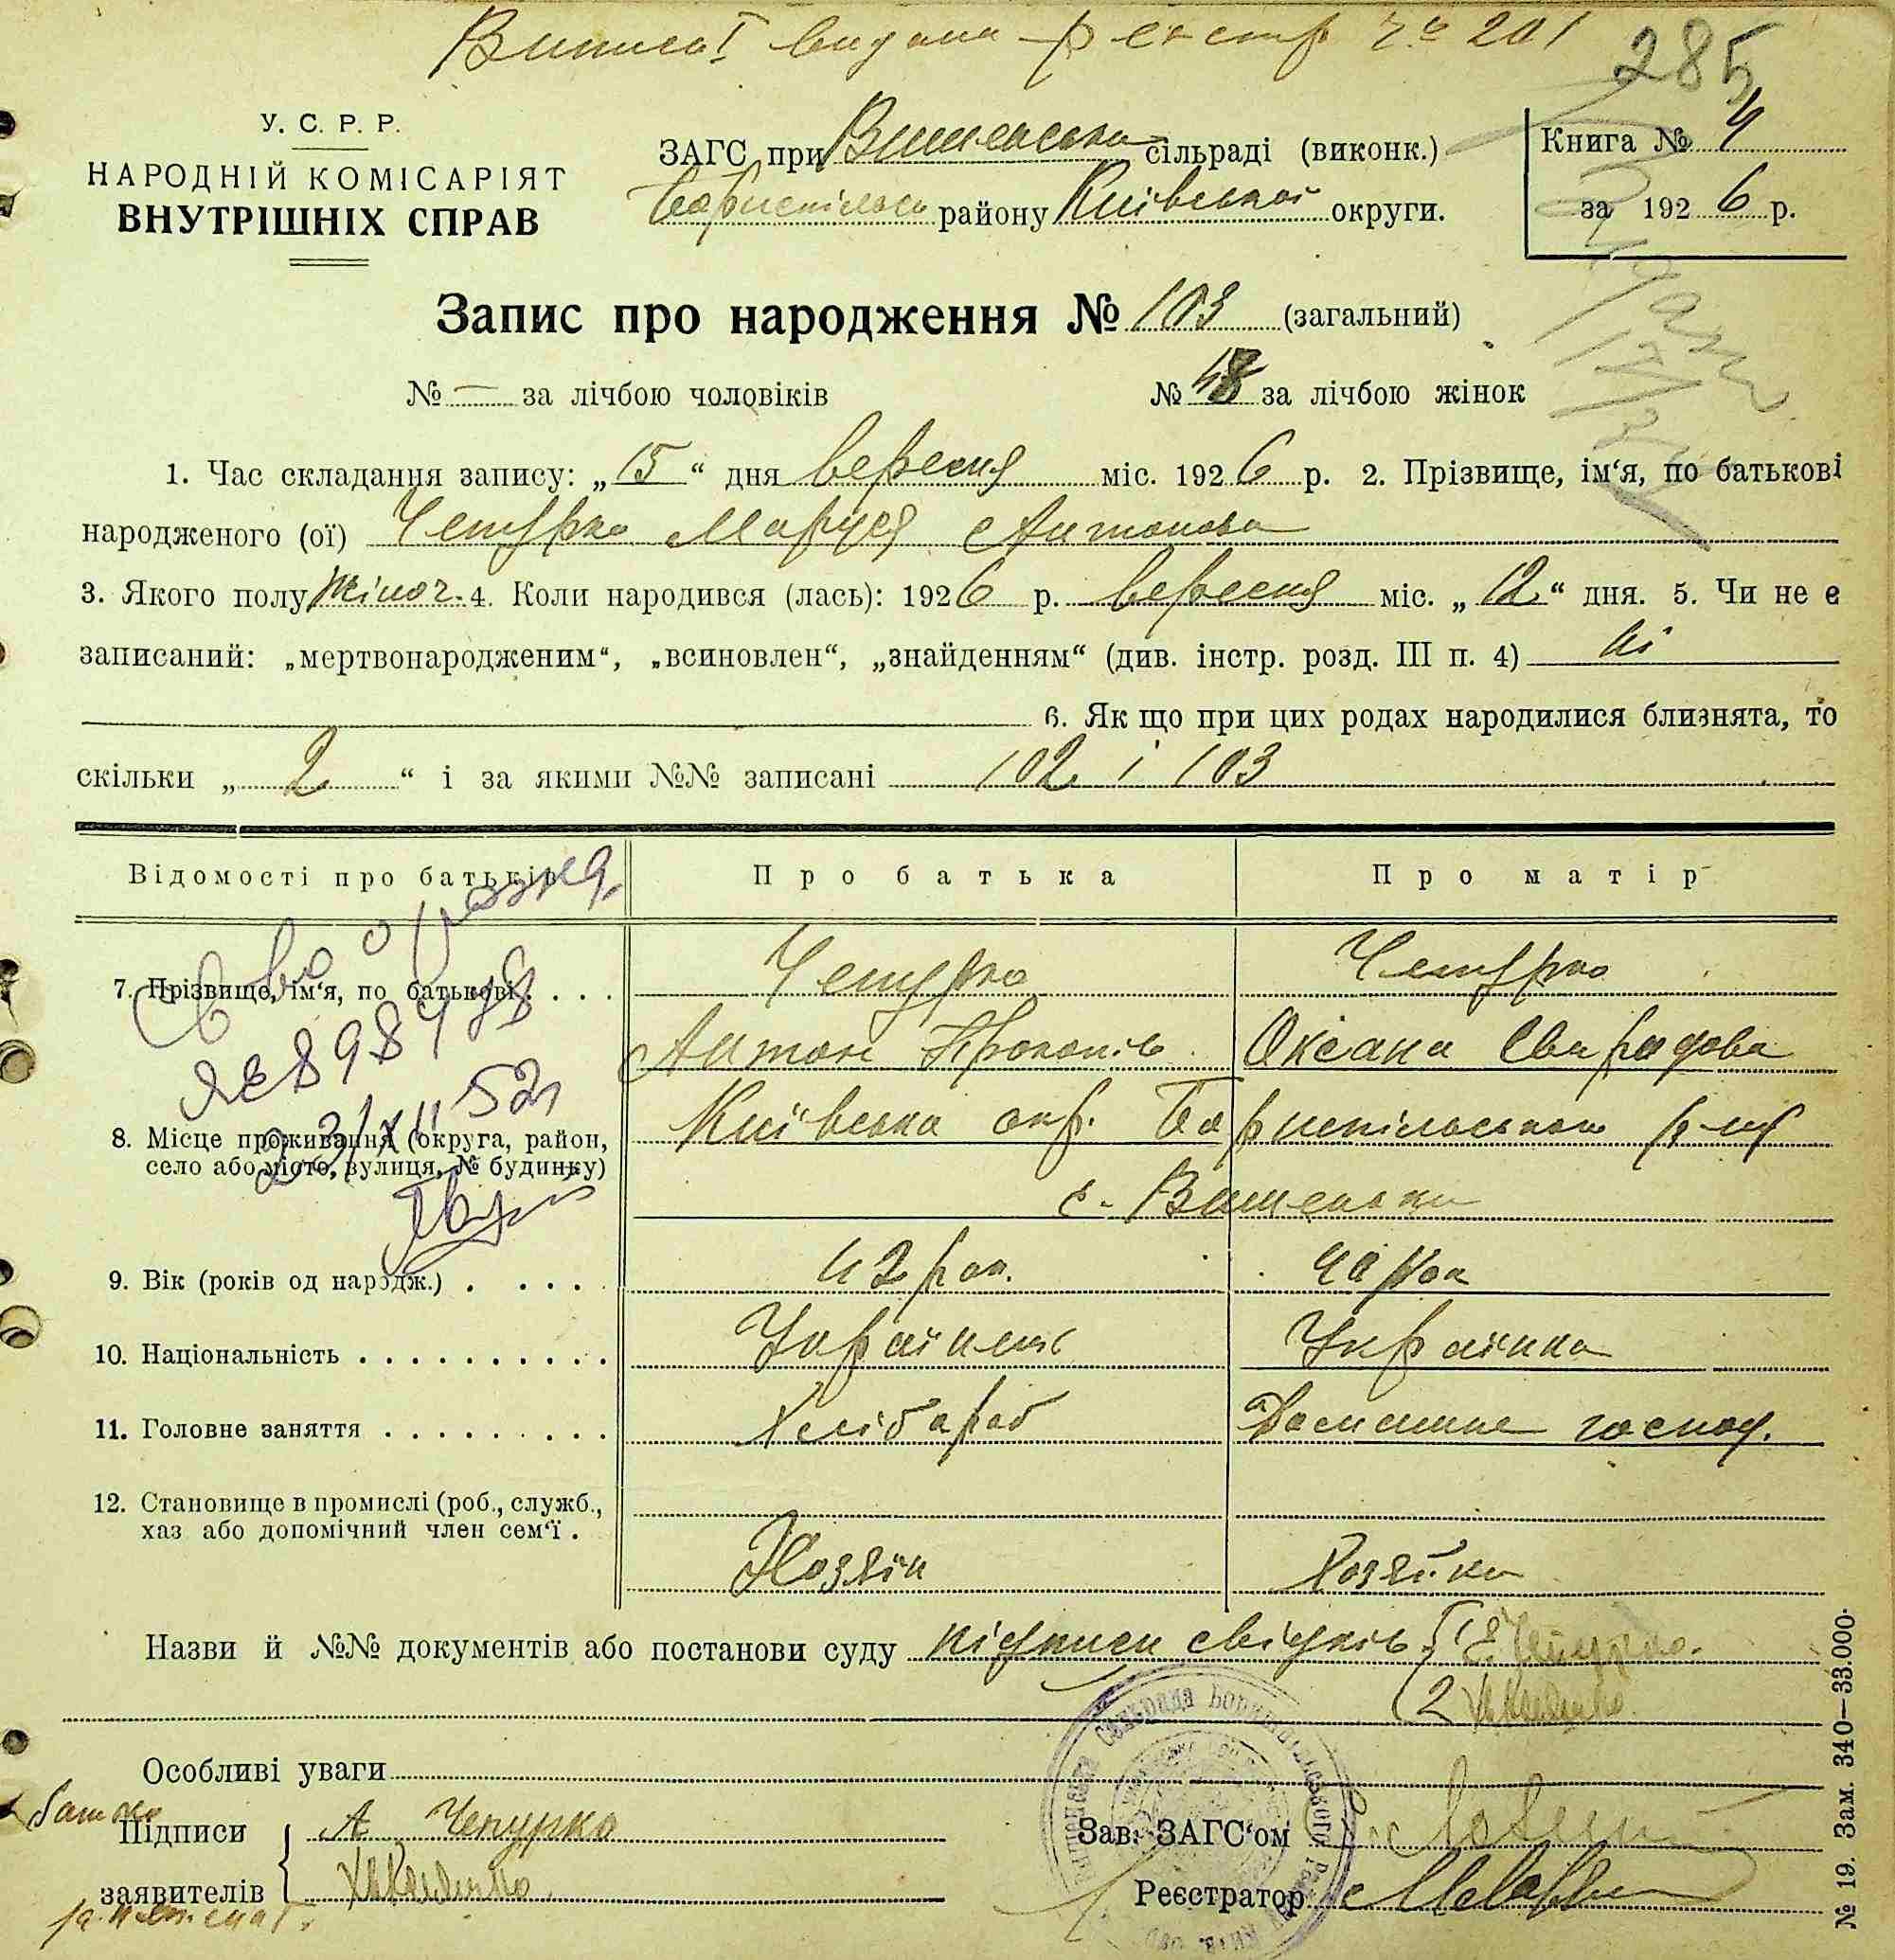 видана реєстр № 201
285
У. С. Р. Р.
НАРОДНІЙ КОМІСАРІЯТ
ВНУТРІШНІХ СПРАВ
ЗАГС при Вишенська сільраді (виконк.)
Бориспільськ району Київської округи.
Книга № 4
за 1926 р.
Запис про народження № 103 (загальний)
№ — за лічбою чоловіків № 48 за лічбою жінок
1. Час складання запису: „15“ дня вересня міс. 1926 р. 2. Прізвище, ім‘я, по батькові
народженого (ої) Чепурко Маруся Антонова
3. Якого полу жіноч. 4. Коли народився (лась): 1926 р. вересня міс. „12“ дня. 5. Чи не є
записаний: „мертвонародженим“, „всиновлен“, „знайденням“ (див. інстр. розд. III п. 4) ні
6. Як що при цих родах народилися близнята, то
скільки „2“ і за якими №№ записані 102 і 103
Відомості про батьків Про батька Про матір
7. Прізвище, ім‘я, по батькові . . . Чепурко Чепурко
Антон Прокопів Оксана Свиридова
8. Місце проживання (округа, район, Київська окр. Бориспільського р-ну
село або місто, вулиця, № будинку) с. Вишеньки
9. Вік (років од народж.) . . . . 42 рок. 40 рок
10. Національність . . . . . . . . . . Українець Українка
11. Головне заняття . . . . . . . . . Хлібороб Домашнє господ.
12. Становище в промислі (роб., служб.,
хаз або допомічний член сем‘ї . Хозяїн Хозяйка
Назви й №№ документів або постанови суду підписи свідків 1 Чепурко.
2
Особливі уваги
батько
Підписи А Чепурко Зав. ЗАГС‘ом
заявителів Реєстратор
№ 19. Зам. 340—33.000.